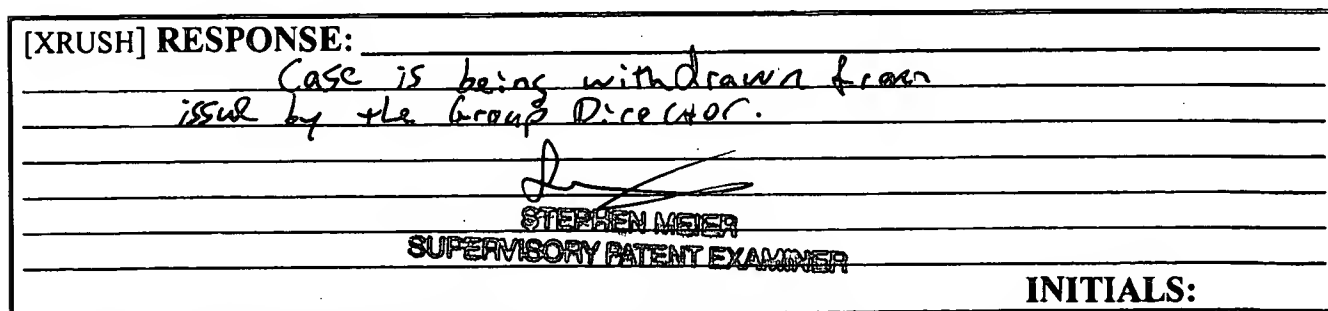 [XRUSH] RESPONSE:
Case is being withdrawn from
issue by the Group Director.
STEPHEN MEIER
SUPERVISORY PATENT EXAMINER
INITIALS: